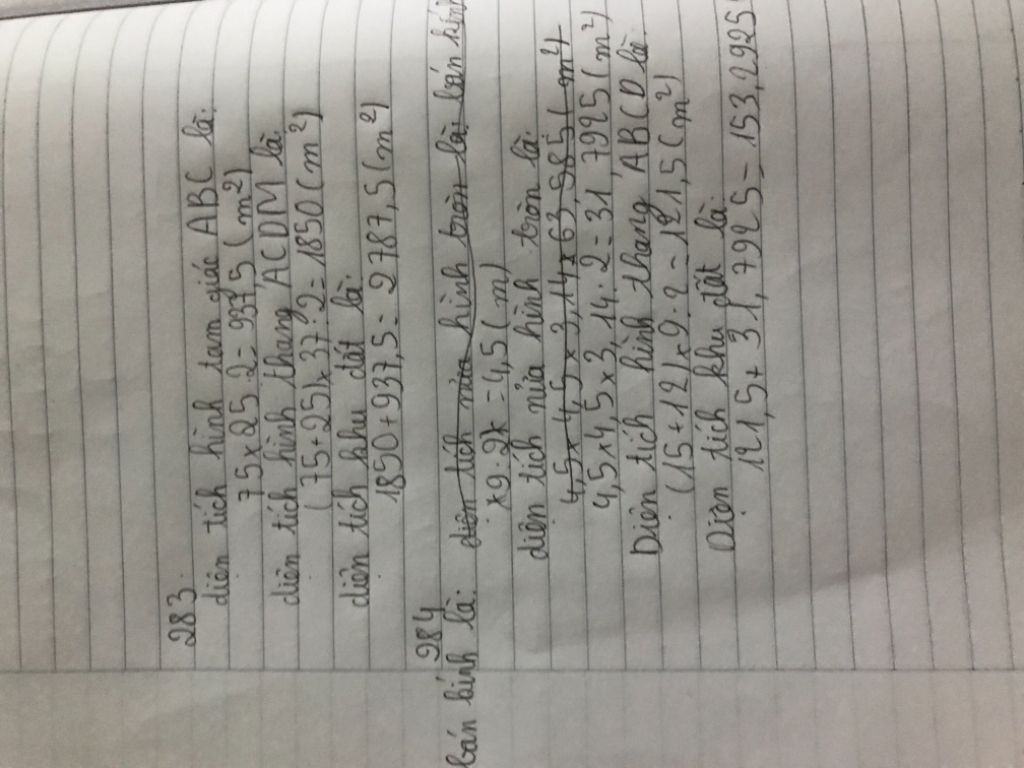 283.
diện tích hình tam giác ABC là:
75 x 25 : 2 = 937,5 (m²)
diện tích hình thang ACDM là
(75 + 25) x 37 : 2 = 1850 (m²)
diện tích khu đất là:
1850 + 937,5 = 2787,5 (m²)
284
bán kính là: diện tích nửa hình tròn là bán kính
x 9 : 2 = 4,5 (m)
diện tích nửa hình tròn là
4,5 x 4,5 x 3,14 x 63,585 (m²)
4,5 x 4,5 x 3,14 : 2 = 31,7925 (m²)
Diện tích hình thang ABCD là:
(15 + 12) x 9 : 2 = 121,5 (m²)
Diện tích khu đất là:
121,5 + 31,7925 = 153,2925